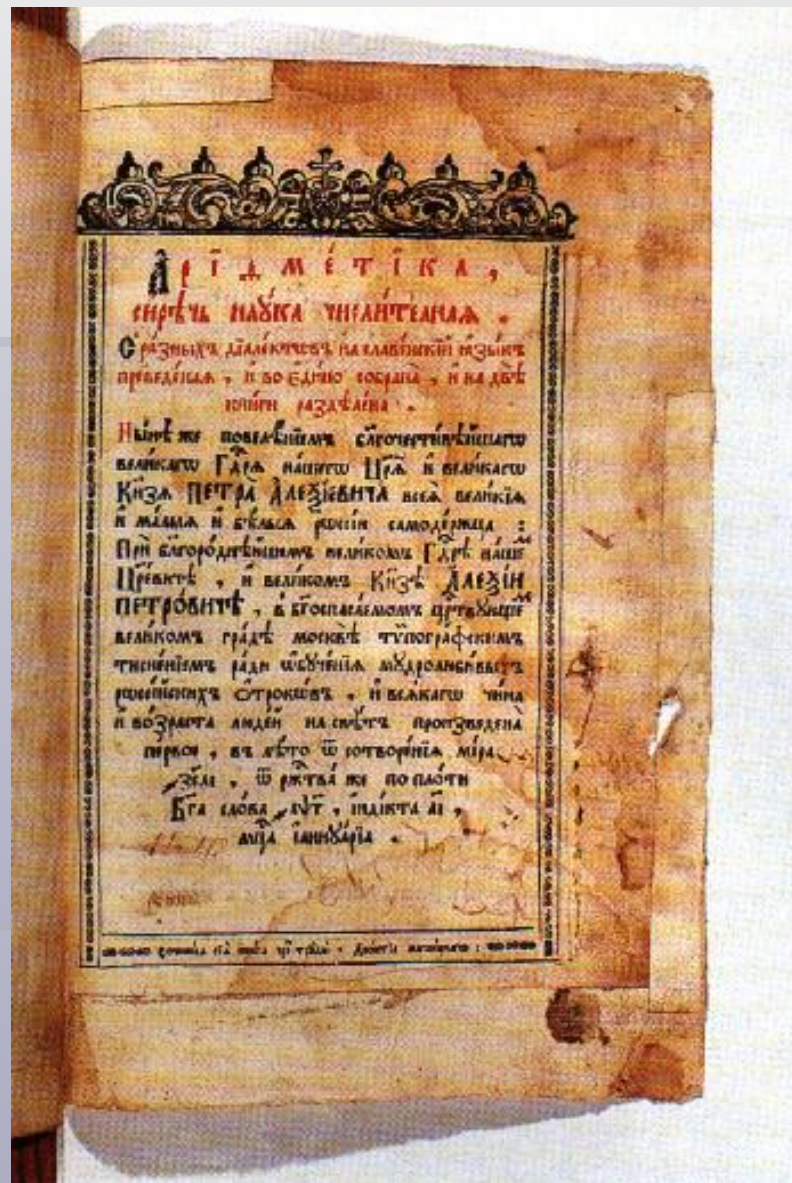 Арїѳме́тїка,
сирѣ́чь наꙋ́ка числи́телная.
С ра́зныхъ дїале́ктѡвъ на славе́нскїй ꙗзы́къ
преведе́ная, и во еди́но собрана̀, и на двѣ̀
кни́ги раздѣле́на.
Ны́нѣ же повелѣ́нїемъ бл҃гочести́вѣйшагѡ
вели́кагѡ Гдⷭ҇рѧ на́шегѡ Цр҃ѧ̀ и вели́кагѡ
Кнѧ́зѧ ПЕТРА̀ АЛЕѮІЕВИЧА всеѧ̀ вели́кїѧ
и ма́лыѧ и бѣ́лыѧ рѡссі́и самоде́ржца:
При бл҃горо́днѣйшемъ вели́комъ Гдⷭ҇рѣ на́шеⷨ
Цр҃е́вичѣ, и вели́комъ Кнѧ́зѣ АЛЕѮІИ
ПЕТРО́ВИЧѢ, в бг҃оспаса́емомъ црⷭ҇твꙋющеⷨ
вели́комъ гра́дѣ москвѣ̀ тѷпогра́фскимъ
тисне́нїемъ ра́ди ѡ҆бꙋче́нїѧ мꙋдролюби́выхъ
рѡссі́йскихъ ѻ҆́трокѡвъ, и всѧ́кагѡ чи́на
и во́зраста люде́й на свѣ́тъ произведена̀
пе́рвое, въ лѣ́то ѿ сотворе́нїѧ мі́ра
҂зсаі, ѿ ржⷭ҇тва̀ же по пло́ти
Бг҃а сло́ва ҂аѱг, інді́кта аі,
мцⷭ҇а іаннꙋа́рїа.
сїѧ̀ кни́га чр҃з трꙋды̀